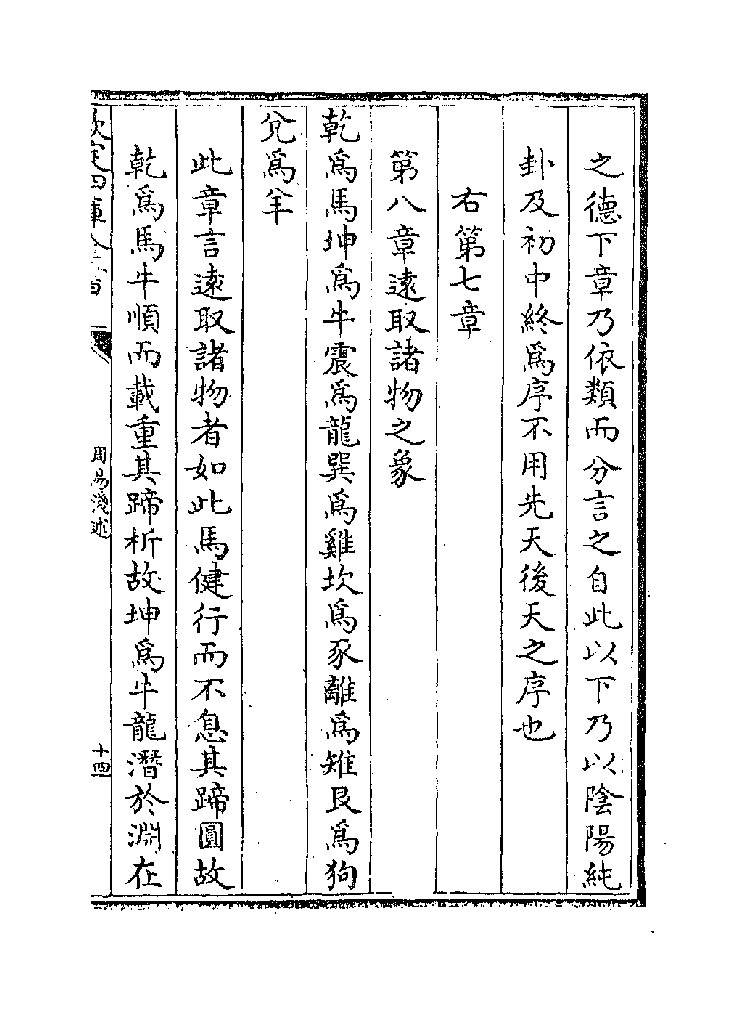 之德下章乃依類而分言之自此以下乃以陰陽純
卦及初中終為序不用先天後天之序也
右第七章
第八章遠取諸物之象
乾為馬坤為牛震為龍巽為雞坎為豕離為雉艮為狗
兌為羊
此章言遠取諸物者如此馬健行而不息其蹄圓故
乾為馬牛順而載重其蹄坼故坤為牛龍潛於淵在
欽定四庫全書
周易淺述
十四